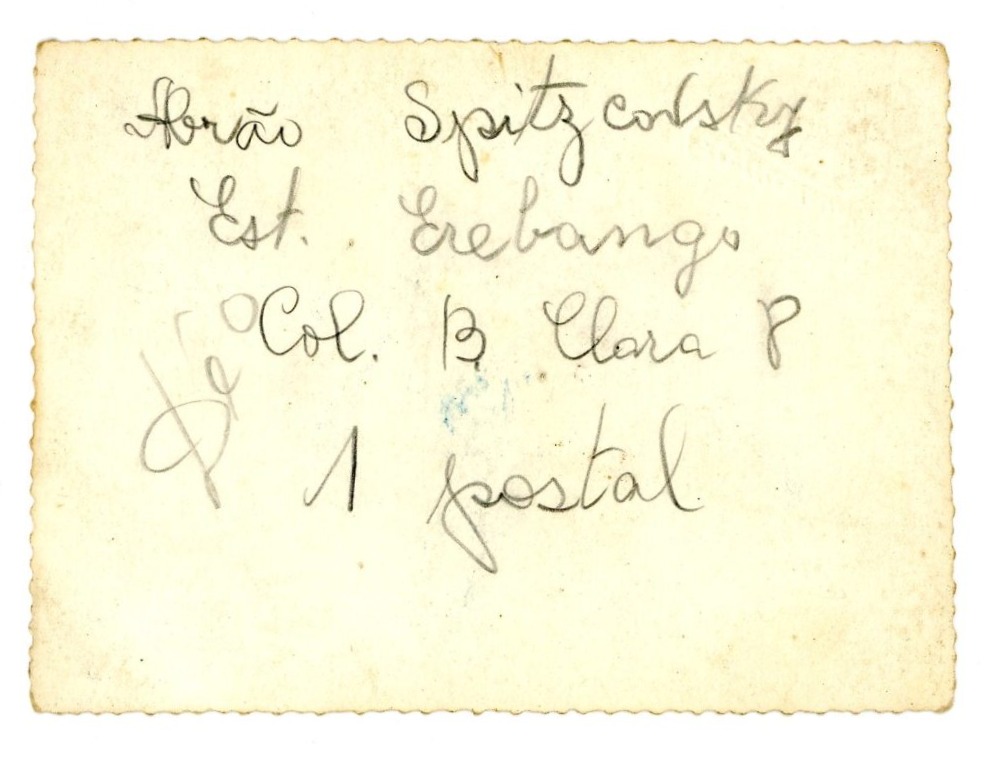 Abrão Spitzcovsky
Est. Erebango
Col. B Clara P
1 postal